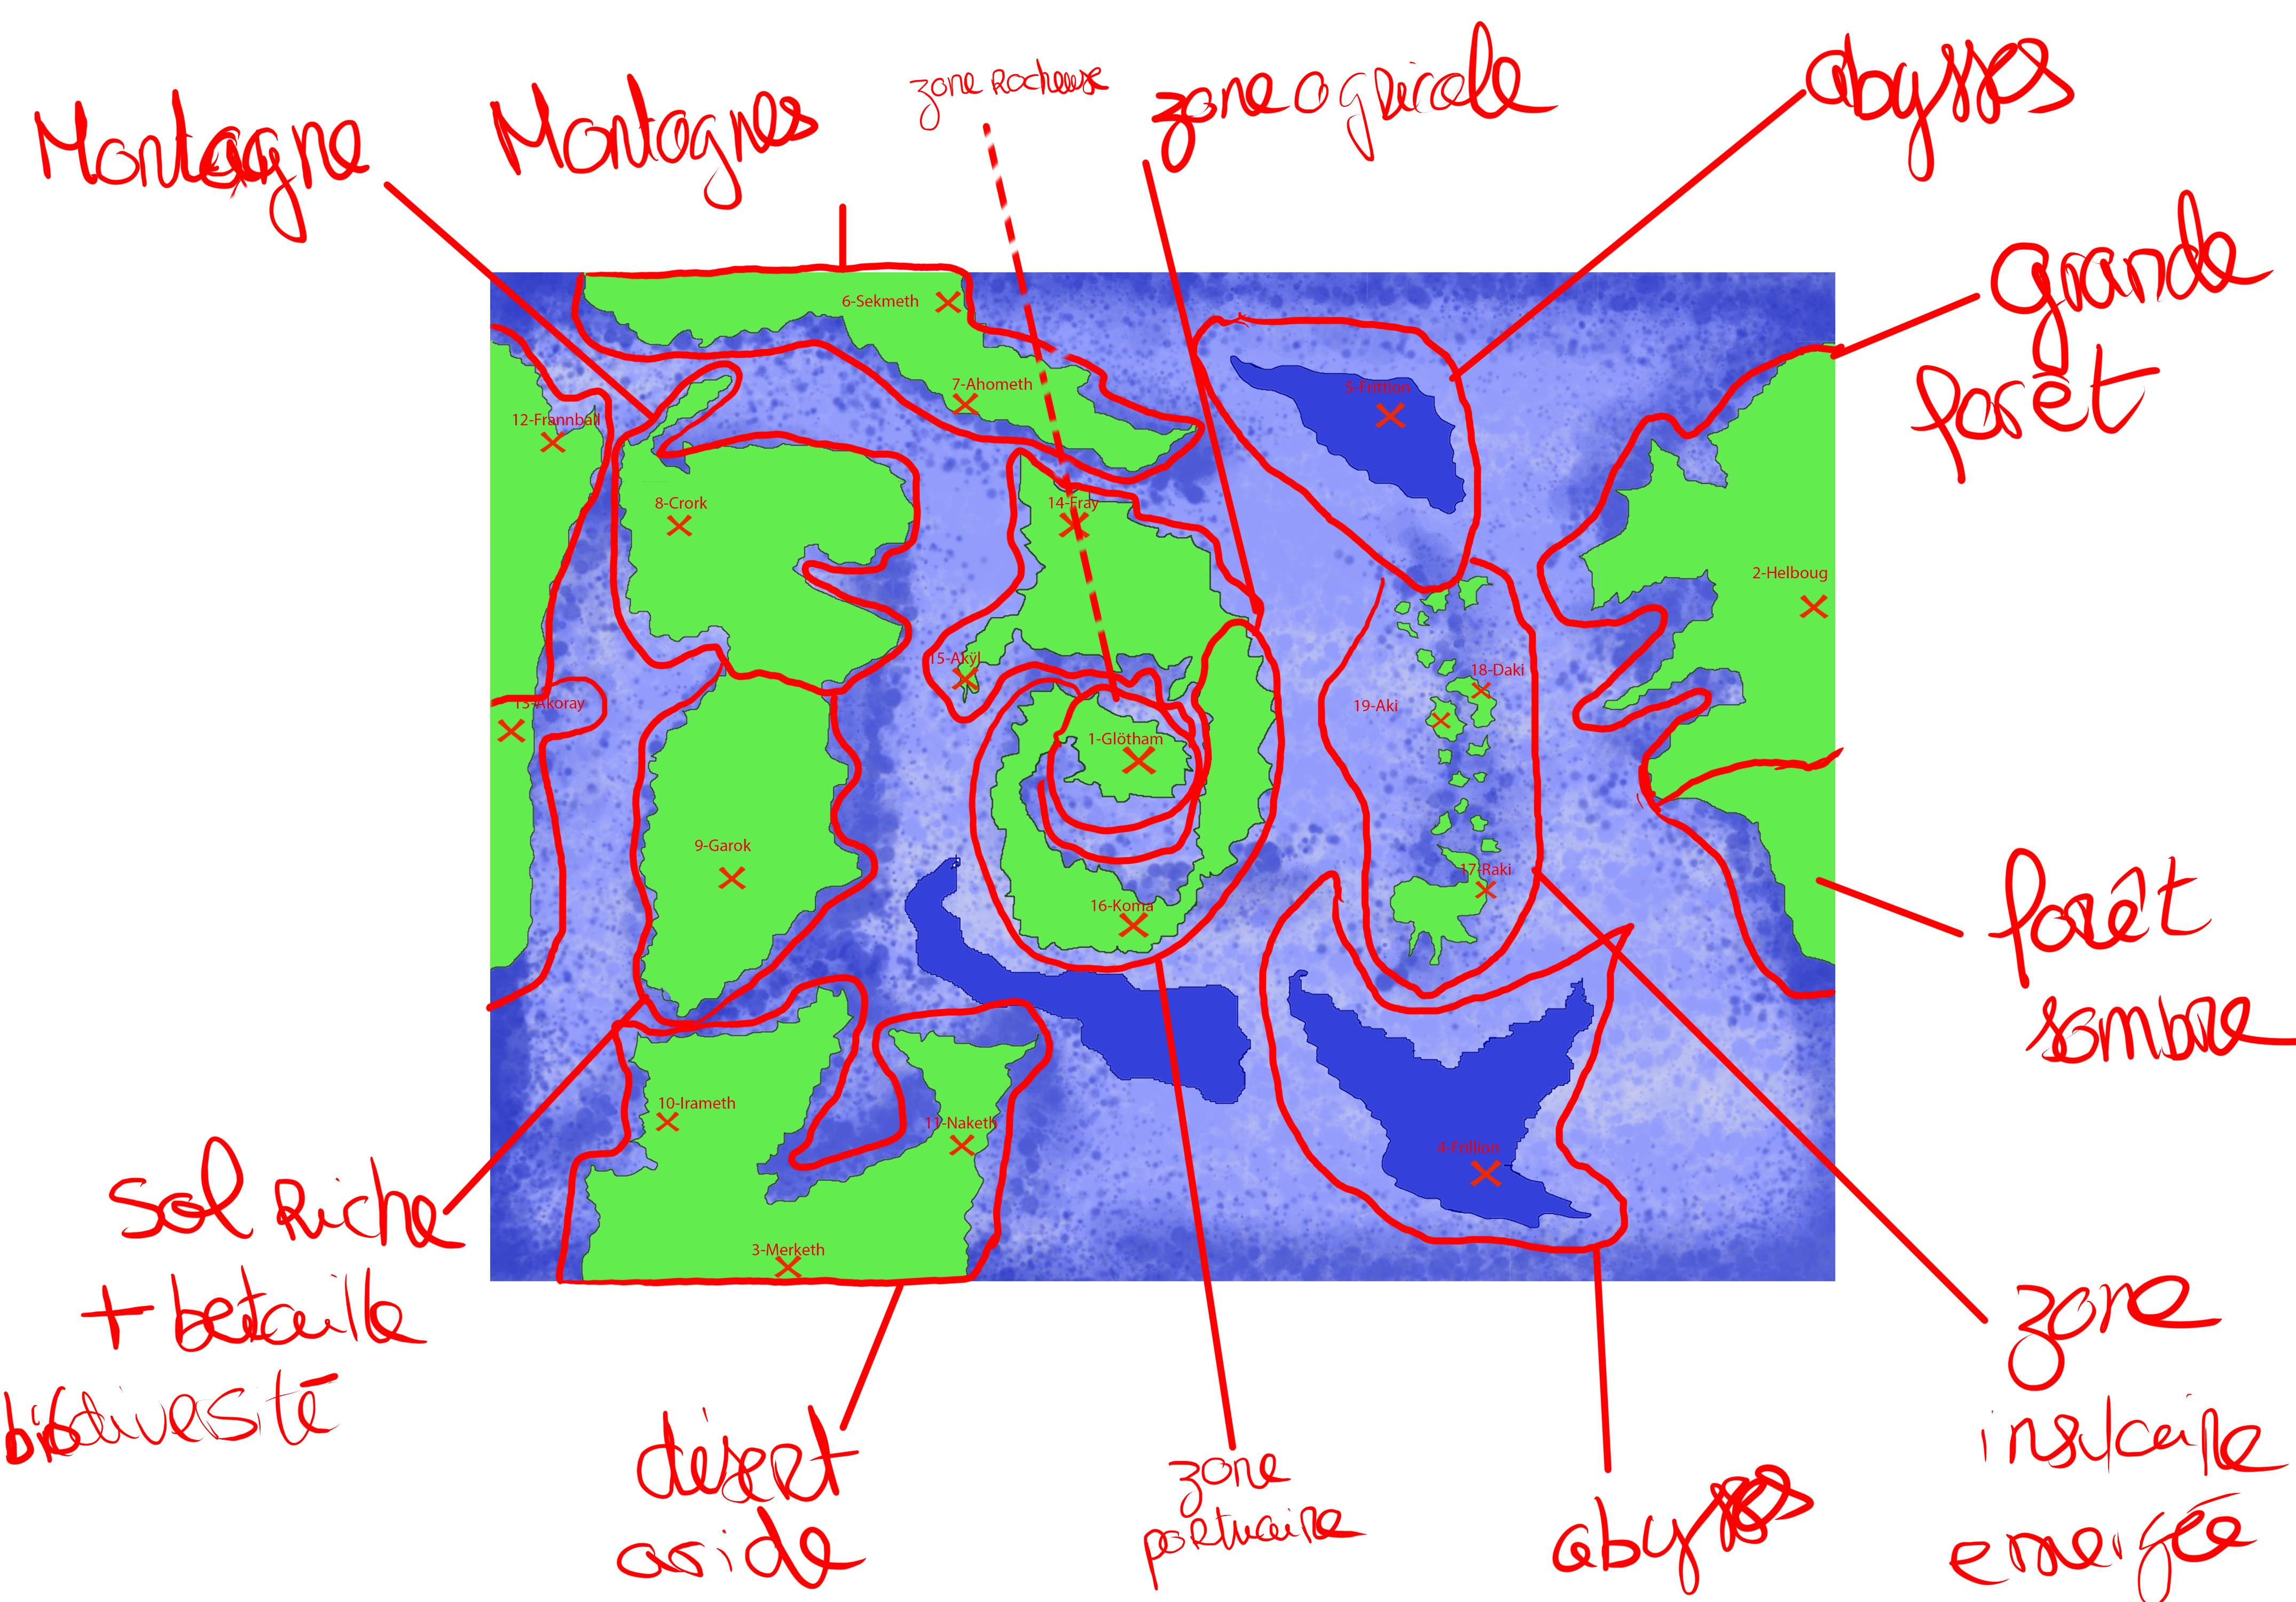 Montagne
Montagnes
zone rocheuse
zone agricole
abysses
grande
forêt
6-Sekmeth
7-Ahometh
5-Frittion
12-Frannball
8-Crork
14-Fray
2-Helboug
15-Akÿl
18-Daki
13-Akoray
19-Aki
1-Glötham
9-Garok
17-Raki
16-Koma
forêt
sombre
10-Irameth
11-Naketh
4-Frillion
3-Merketh
sol riche
+ betaille
biodiversité
désert
aride
zone
portuaire
abysses
zone
insulaire
emergée